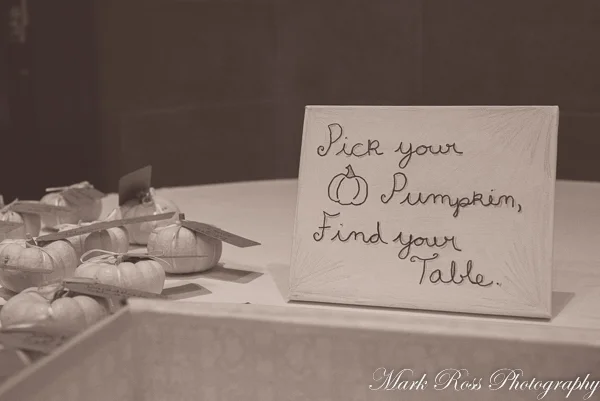 Pick your
Pumpkin,
Find your
Table.
Mark Ross Photography